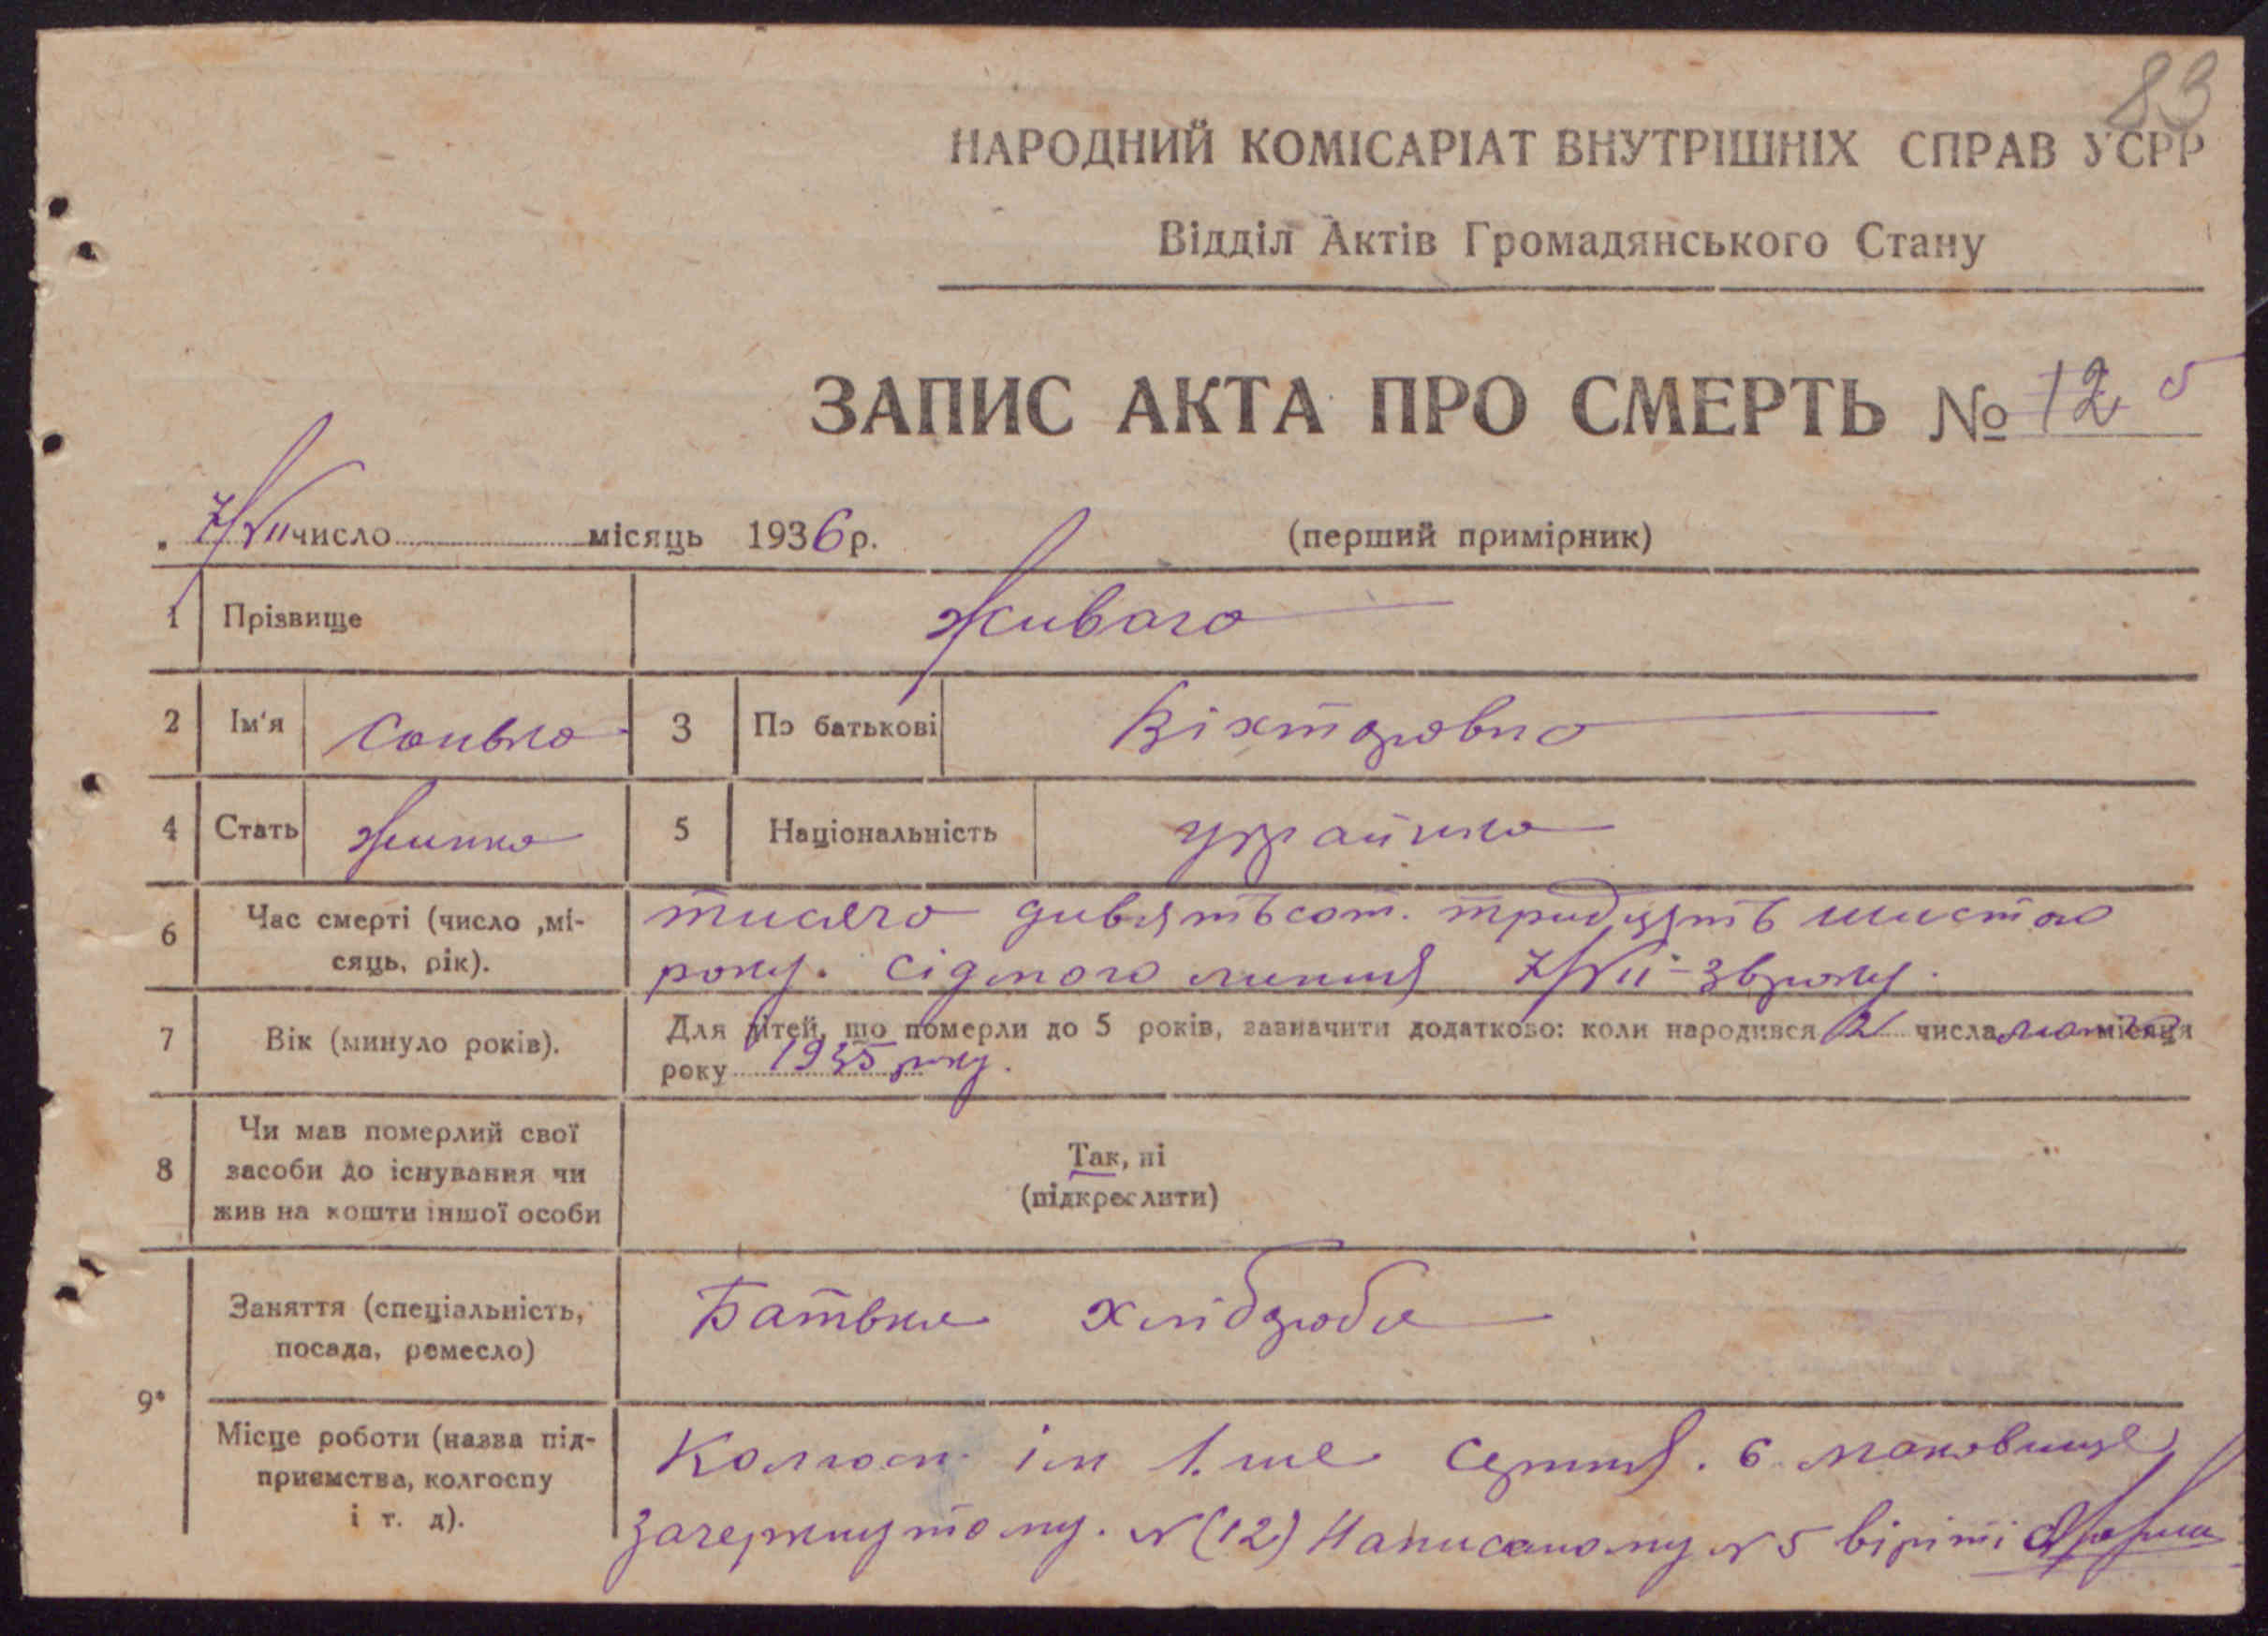 83
НАРОДНИЙ КОМІСАРІАТ ВНУТРІШНІХ СПРАВ УСРР
Відділ Актів Громадянського Стану
ЗАПИС АКТА ПРО СМЕРТЬ № 12 5
„ 7/VII число місяць 1936 р. (перший примірник)
1 Прізвище Живага
2 Ім'я 3 По батькові Віхторовна
4 Стать жинка 5 Національність украйинка
6 Час смерті (число ,мі-
сяць, рік).
тисяча дивятьсот. тридцять шистого
року. сідмого липня 7/VII-
7 Вік (минуло років). Для дітей, що померли до 5 років, зазначити додатково: коли народився числа місяця
року 1935 року.
8 Чи мав померлий свої
засоби до існування чи
жив на кошти іншої особи
Так, ні
(підкреслити)
9*
Заняття (спеціальність,
посада, ремесло)
Батьки хлібороби
Місце роботи (назва під-
приємства, колгоспу
і т. д).
Колгосп ім 1. ше Серпня.
Зачеркнутому. N (12) Написаному N 5 віріті